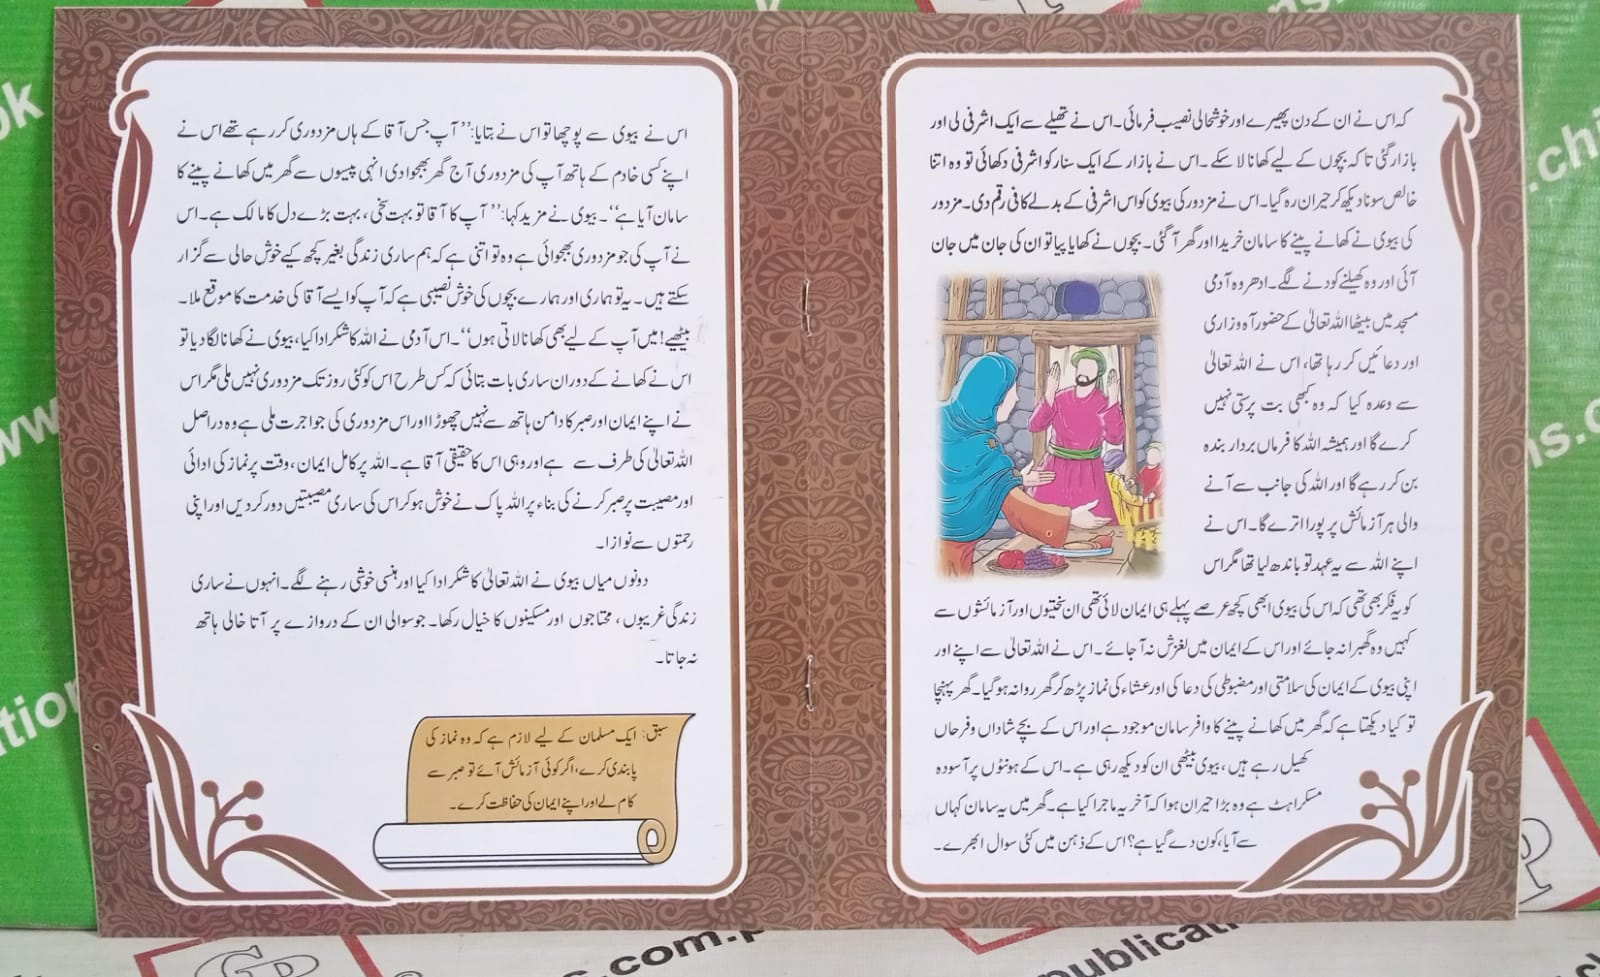 کہ اس نے ان کے دن پھیرے اور خوشحالی نصیب فرمائی۔ اس نے تھیلے سے ایک اشرفی لی اور
بازار گئی تاکہ بچوں کے لیے کھانا لا سکے۔ اس نے بازار کے ایک سنار کو اشرفی دکھائی تو وہ اتنا
خالص سونا دیکھ کر حیران رہ گیا۔ اس نے مزدور کی بیوی کو اس اشرفی کے بدلے کافی رقم دی۔ مزدور
کی بیوی نے کھانے پینے کا سامان خریدا اور گھر آ گئی۔ بچوں نے کھایا پیا تو ان کی جان میں جان
آئی اور وہ کھیلنے کودنے لگے۔ ادھر وہ آدمی
مسجد میں بیٹھا اللہ تعالیٰ کے حضور آہ و زاری
اور دعائیں کر رہا تھا، اس نے اللہ تعالیٰ
سے وعدہ کیا کہ وہ کبھی بت پرستی نہیں
کرے گا اور ہمیشہ اللہ کا فرماں بردار بندہ
بن کر رہے گا اور اللہ کی جانب سے آنے
والی ہر آزمائش پر پورا اترے گا۔ اس نے
اپنے اللہ سے یہ عہد تو باندھ لیا تھا مگر اس
کو یہ فکر بھی تھی کہ اس کی بیوی ابھی کچھ عرصے پہلے ہی ایمان لائی تھی ان سختیوں اور آزمائشوں سے
کہیں وہ گھبرا نہ جائے اور اس کے ایمان میں لغزش نہ آ جائے۔ اس نے اللہ تعالیٰ سے اپنے اور
اپنی بیوی کے ایمان کی سلامتی اور مضبوطی کی دعا کی اور عشاء کی نماز پڑھ کر گھر روانہ ہو گیا۔ گھر پہنچا
تو کیا دیکھتا ہے کہ گھر میں کھانے پینے کا وافر سامان موجود ہے اور اس کے بچے شاداں و فرحاں
کھیل رہے ہیں، بیوی بیٹھی ان کو دیکھ رہی ہے۔ اس کے ہونٹوں پر آسودہ
مسکراہٹ ہے وہ بڑا حیران ہوا کہ آخر یہ ماجرا کیا ہے۔ گھر میں یہ سامان کہاں
سے آیا، کون دے گیا ہے؟ اس کے ذہن میں کئی سوال ابھرے۔
اس نے بیوی سے پوچھا تو اس نے بتایا: ’’آپ جس آقا کے ہاں مزدوری کر رہے تھے اس نے
اپنے کسی خادم کے ہاتھ آپ کی مزدوری آج گھر بھجوا دی انہی پیسوں سے گھر میں کھانے پینے کا
سامان آیا ہے‘‘۔ بیوی نے مزید کہا: ’’آپ کا آقا تو بہت سخی، بہت بڑے دل کا مالک ہے۔ اس
نے آپ کی جو مزدوری بھجوائی ہے وہ تو اتنی ہے کہ ہم ساری زندگی بغیر کچھ کیے خوش حالی سے گزار
سکتے ہیں۔ یہ تو ہماری اور ہمارے بچوں کی خوش نصیبی ہے کہ آپ کو ایسے آقا کی خدمت کا موقع ملا۔
بیٹھیے! میں آپ کے لیے بھی کھانا لاتی ہوں‘‘۔ اس آدمی نے اللہ کا شکر ادا کیا، بیوی نے کھانا لگا دیا تو
اس نے کھانے کے دوران ساری بات بتائی کہ کس طرح اس کو کئی روز تک مزدوری نہیں ملی مگر اس
نے اپنے ایمان اور صبر کا دامن ہاتھ سے نہیں چھوڑا اور اس مزدوری کی جو اجرت ملی ہے وہ دراصل
اللہ تعالیٰ کی طرف سے ہے اور وہی اس کا حقیقی آقا ہے۔ اللہ پر کامل ایمان، وقت پر نماز کی ادائی
اور مصیبت پر صبر کرنے کی بناء پر اللہ پاک نے خوش ہو کر اس کی ساری مصیبتیں دور کر دیں اور اپنی
رحمتوں سے نوازا۔
دونوں میاں بیوی نے اللہ تعالیٰ کا شکر ادا کیا اور ہنسی خوشی رہنے لگے۔ انہوں نے ساری
زندگی غریبوں، محتاجوں اور مسکینوں کا خیال رکھا۔ جو سوالی ان کے دروازے پر آتا خالی ہاتھ
نہ جاتا۔
سبق: ایک مسلمان کے لیے لازم ہے کہ وہ نماز کی
پابندی کرے، اگر کوئی آزمائش آئے تو صبر سے
کام لے اور اپنے ایمان کی حفاظت کرے۔